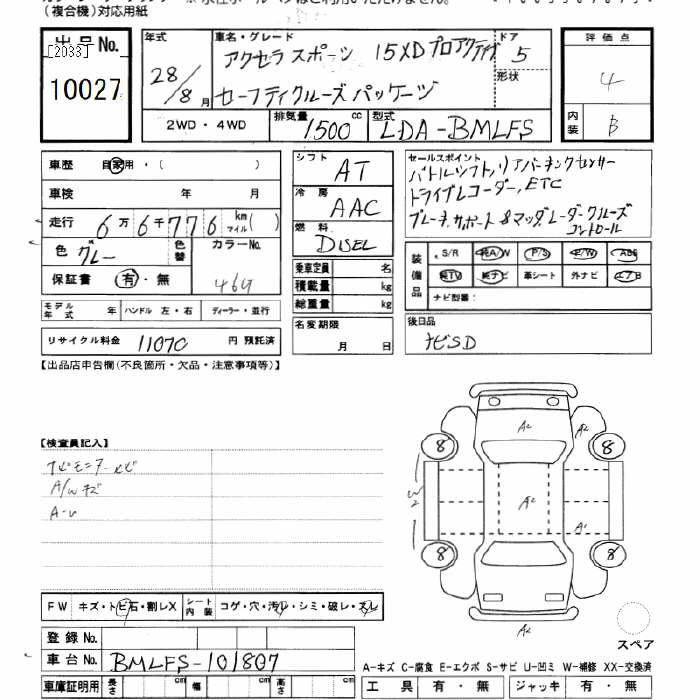 （複合機）対応用紙
出品No.
[2033]
10027
年式
28/8月
車名・グレード
アクセラスポーツ 15XDプロアクティブ
セーフティクルーズパッケージ
ドア
5
形状
評価点
4
内装
B
2WD・4WD
排気量
1500 cc
型式
LDA-BMLFS
車歴 自家用・( )
車検 年 月
走行 6万6千776 km マイル( )
色 グレー
色替
カラーNo.
46G
保証書 有・無
モデル年式 年
ハンドル 左・右
ディーラー・並行
リサイクル料金 11070 円 預託済
シフト
AT
冷房
AAC
燃料
DISEL
乗車定員 名
積載量 kg
総重量 kg
名変期限
月 日
セールスポイント
パドルシフト,リアパーキングセンサー
ドライブレコーダー,ETC
ブレーキサポート&マツダレーダークルーズ
コントロール
装備品
S/R 純A/W P/S P/W ABS
純TV 純ナビ 革シート 外ナビ エアB
ナビ型番：
後日品
ナビSD
【出品店申告欄(不良箇所・欠品・注意事項等)】
【検査員記入】
A/Wキズ
A-U
FW キズ・トビ石・割レX
シート内装 コゲ・穴・汚レ・シミ・破レ・スレ
登録No.
車台No. BMLFS-101807
車庫証明用 長さ cm 幅 cm 高さ cm
A2
A2
8
8
W2
A2
A1
8
8
A2
スペア
A-キズ C-腐食 E-エクボ S-サビ U-凹ミ W-補修 XX-交換済
工具 有・無 ジャッキ 有・無